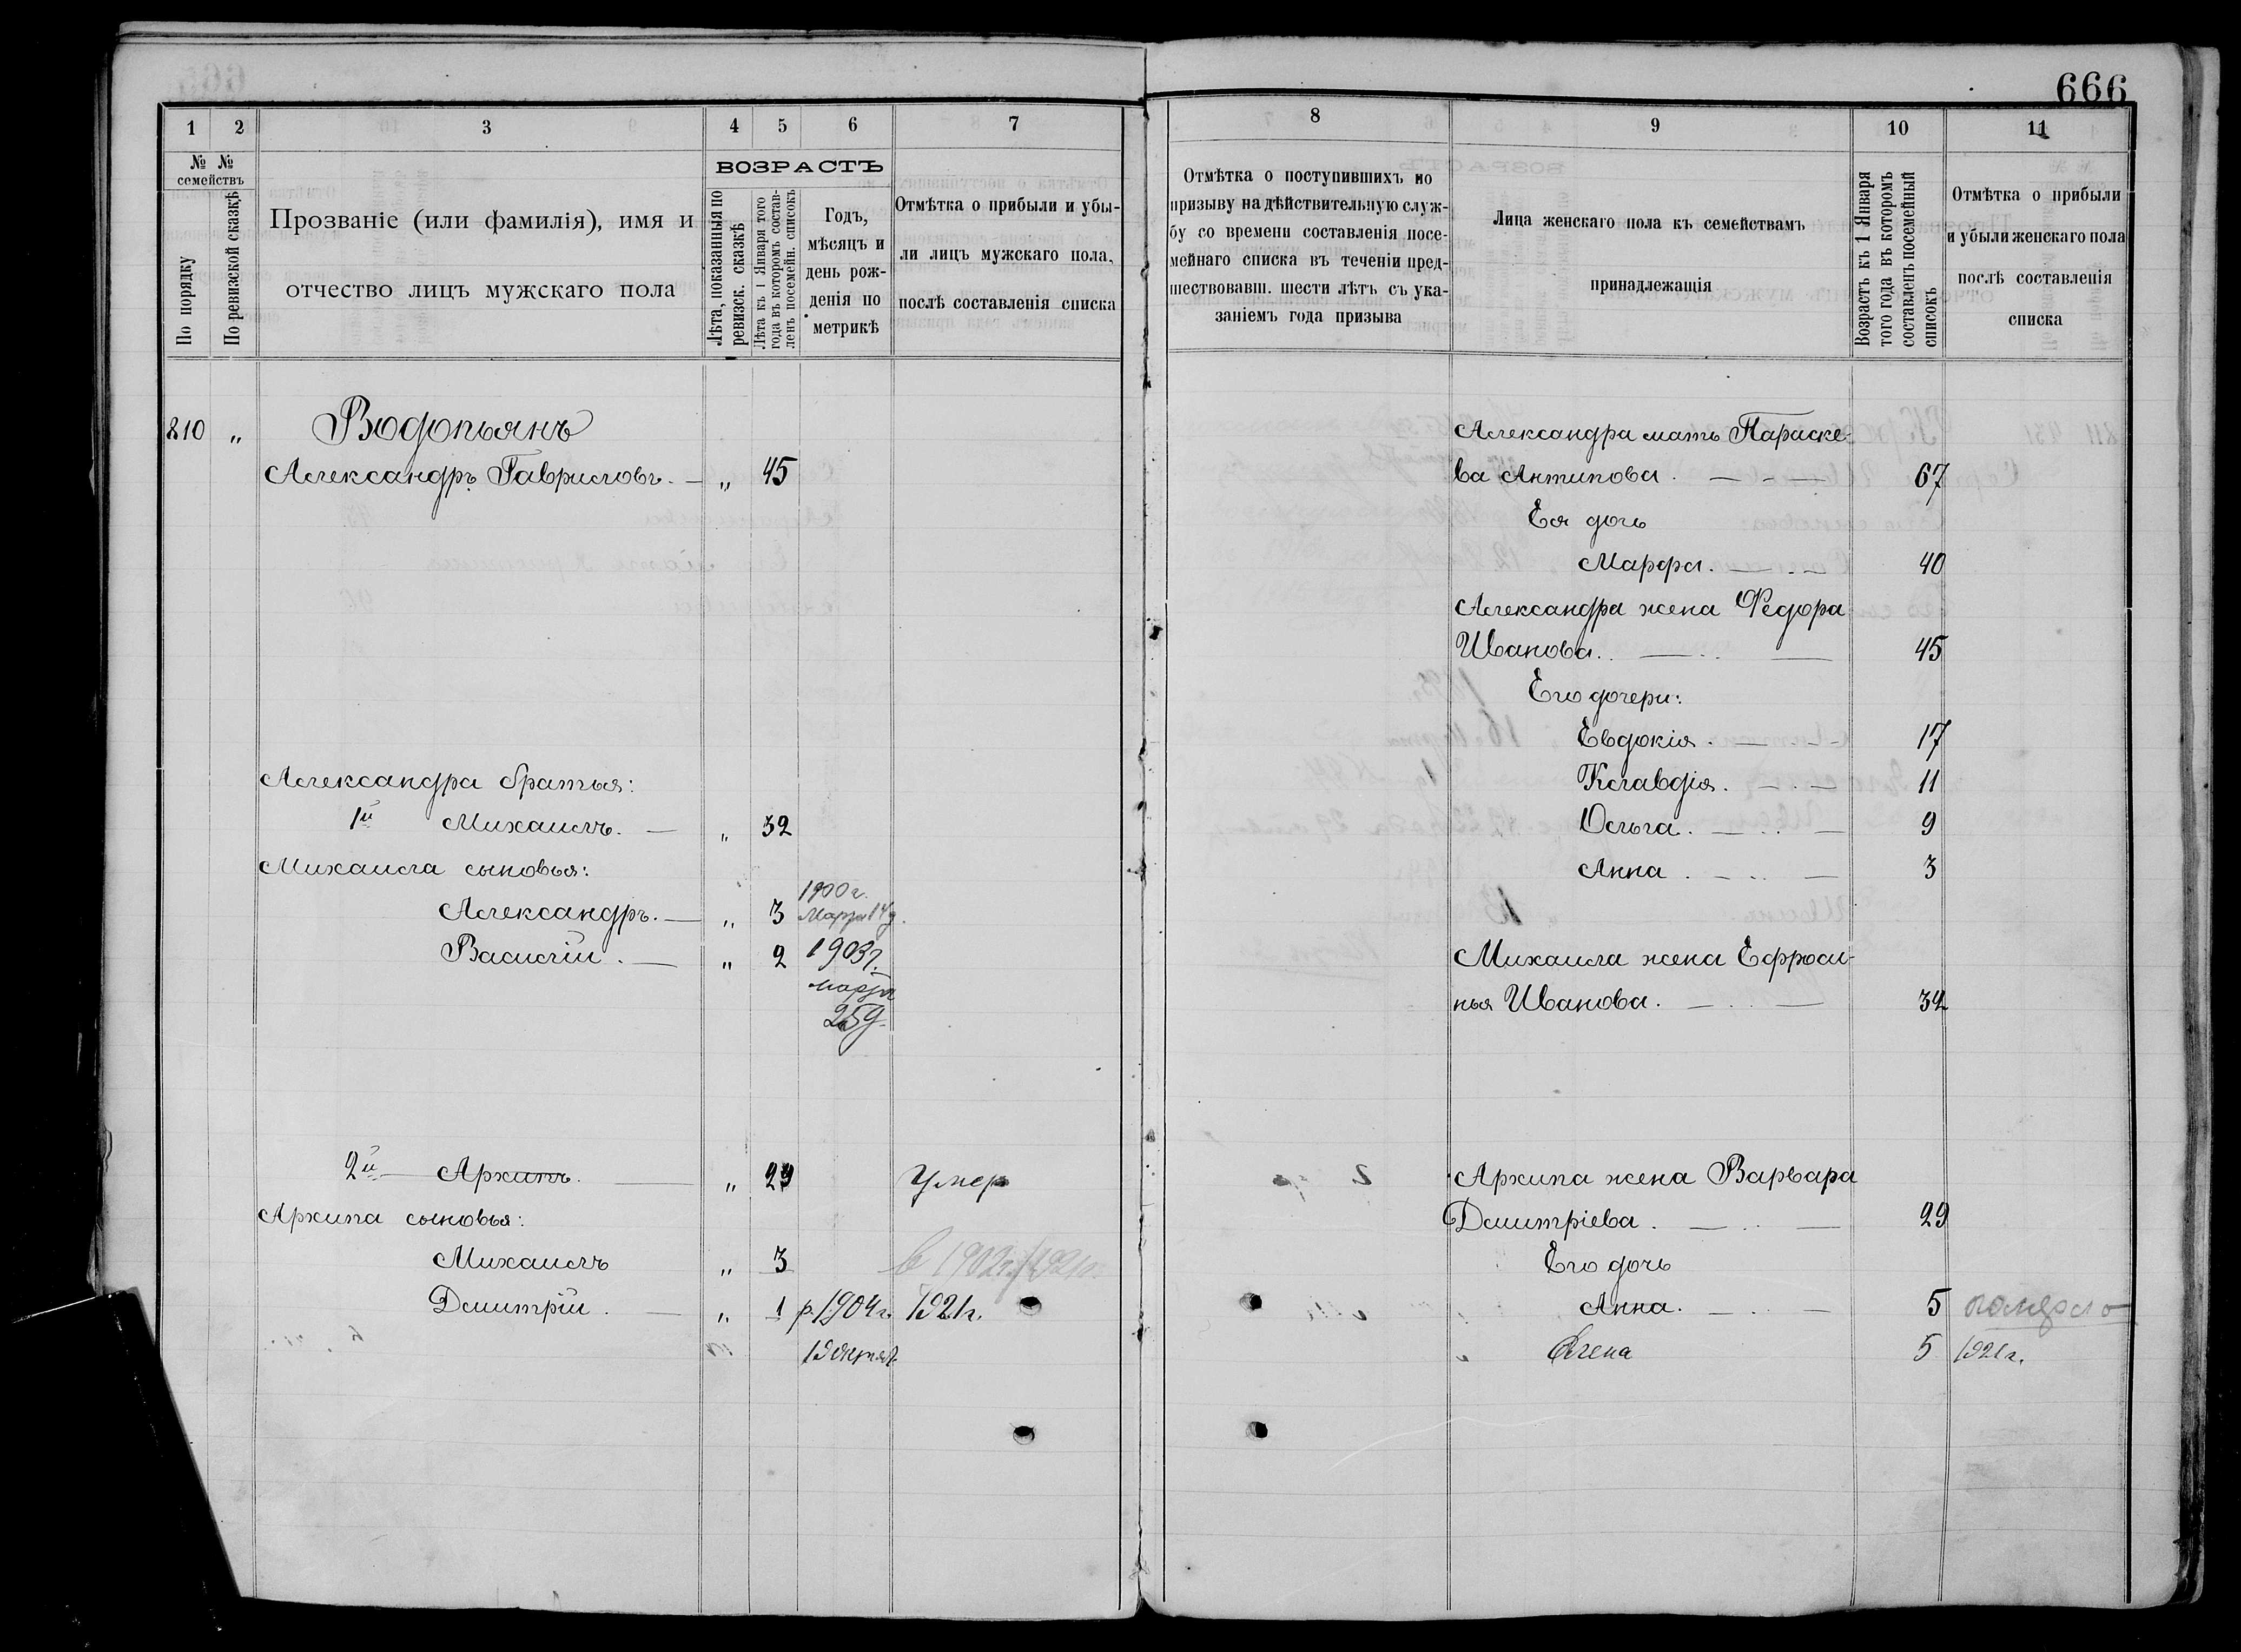 666
1 2 3 4 5 6 7
№ № семействъ
По порядку
По ревизской сказкѣ
Прозваніе (или фамилія), имя и
отчество лицъ мужскаго пола
ВОЗРАСТЪ
Лѣта, показанныя по
ревизск. сказкѣ
Лѣта къ 1 Января того
года въ которомъ состав-
ленъ посемейн. списокъ
Годъ,
мѣсяцъ и
день рож-
денія по
метрикѣ
Отмѣтка о прибыли и убы-
ли лицъ мужскаго пола,
послѣ составленія списка
810 „ Водопьянъ
Александръ Гавриловъ. — „ 45
Александра братья:
1й Михаилъ. — „ 32
Михаила сыновья:
1900 г.
Александръ. — „ 3 Марта 14 д.
Василій. — „ 2 1903 г.
марта
25 д.
2й — Архипъ. — „ 29 Умер
Архипа сыновья:
Михаилъ „ 3 в 1902 г. 1921 г.
Димитрій. — „ 1 р. 1904 г. 1921 г.
19 октяб.
8 9 10 11
Отмѣтка о поступившихъ по
призыву на дѣйствительную служ-
бу со времени составленія посе-
мейнаго списка въ теченіи пред-
шествовавш. шести лѣтъ съ ука-
заніемъ года призыва
Лица женскаго пола къ семействамъ
принадлежащія
Возрастъ къ 1 Января
того года въ которомъ
составленъ посемейный
списокъ
Отмѣтка о прибыли
и убыли женскаго пола
послѣ составленія
списка
Александра мать Параске-
ва Антипова. — - — 67
Ея дочь
Марфа. — . — 40
Александра жена Федора
Иванова. . — . . — 45
Его дочери:
Евдокія. — - - 17
Клавдія. — . — 11
Ольга. — . . — 9
Анна. — . . — 3
Михаила жена Ефроси-
нья Иванова. — . . — 32
Архипа жена Варвара
Дмитріева. — . . — 29
Его дочь
Анна. — . . — 5
Елена 5 1921 г.